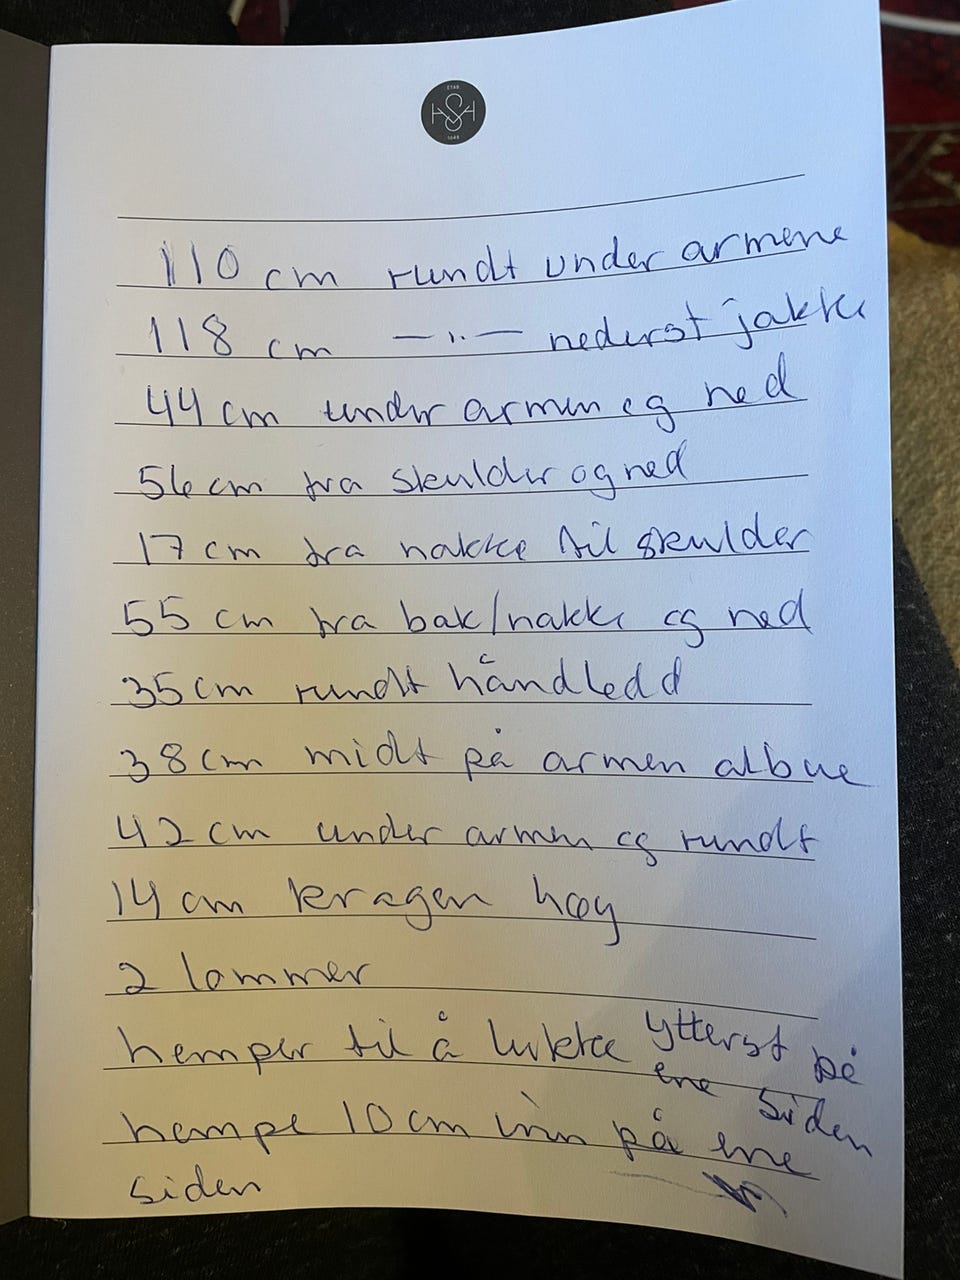 ETAB
1648
110 cm rundt under armene
118 cm —"— nederst jakke
44 cm under armen og ned
56 cm fra skulder og ned
17 cm fra nakke til skulder
55 cm fra bak/nakke og ned
35 cm rundt håndledd
38 cm midt på armen albue
42 cm under armen og rundt
14 cm kragen høy
2 lommer
hemper til å lukke ytterst på
ene siden
hempe 10 cm inn på ene
siden